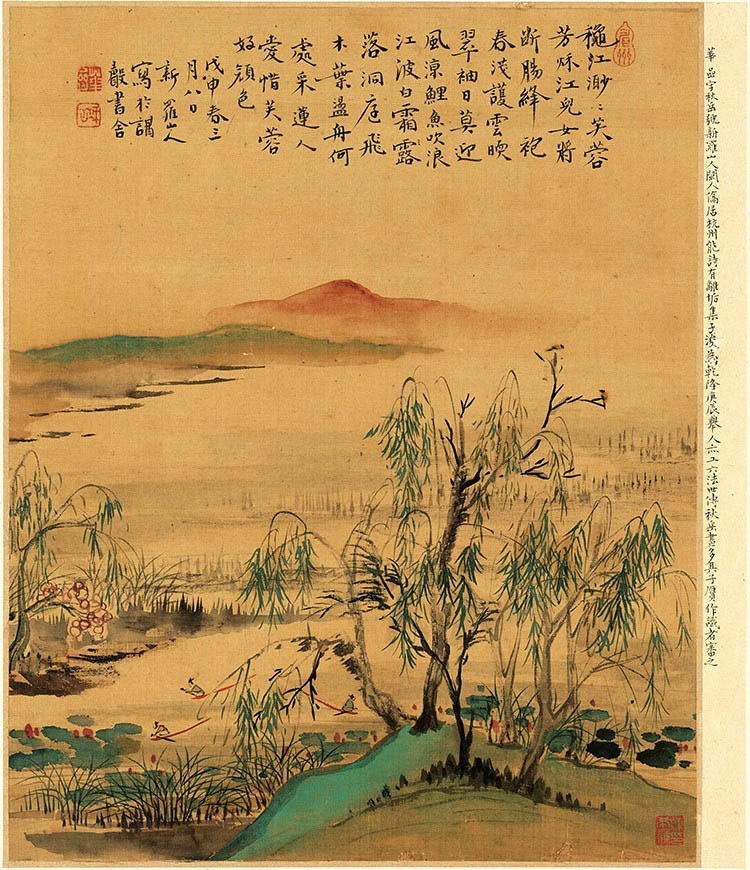 穐江渺〻芙蓉
芳秌江兒女將
断腸絳袍
春淺護雲暎
翠袖日莫迎
風涼鯉魚吹浪
江波白霜露
落洞庭飛
木葉盪舟何
處采蓮人
愛惜芙蓉
好顔色
戊申春三
月八日
新羅山人
寫於講
聲書舍
華嵒字秋岳號新羅山人閩人僑居杭州能詩有離垢集子浚爲乾隆庚辰舉人亦工六法世傳秋岳畫多其子贋作識者審之